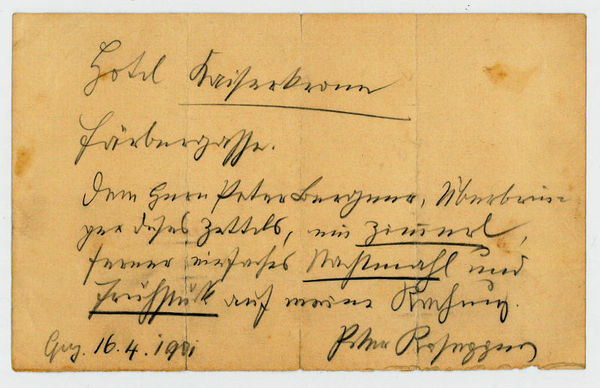 Hotel Kaiserkrone
Färbergasse.
Dem Herrn Peter Bergner, Überbrin-
ger dieses Zettels, ein Zimmerl,
ferner einfaches Nachtmahl und
Frühstück auf meine Rechnung.
Graz. 16.4.1901 Peter Rosegger